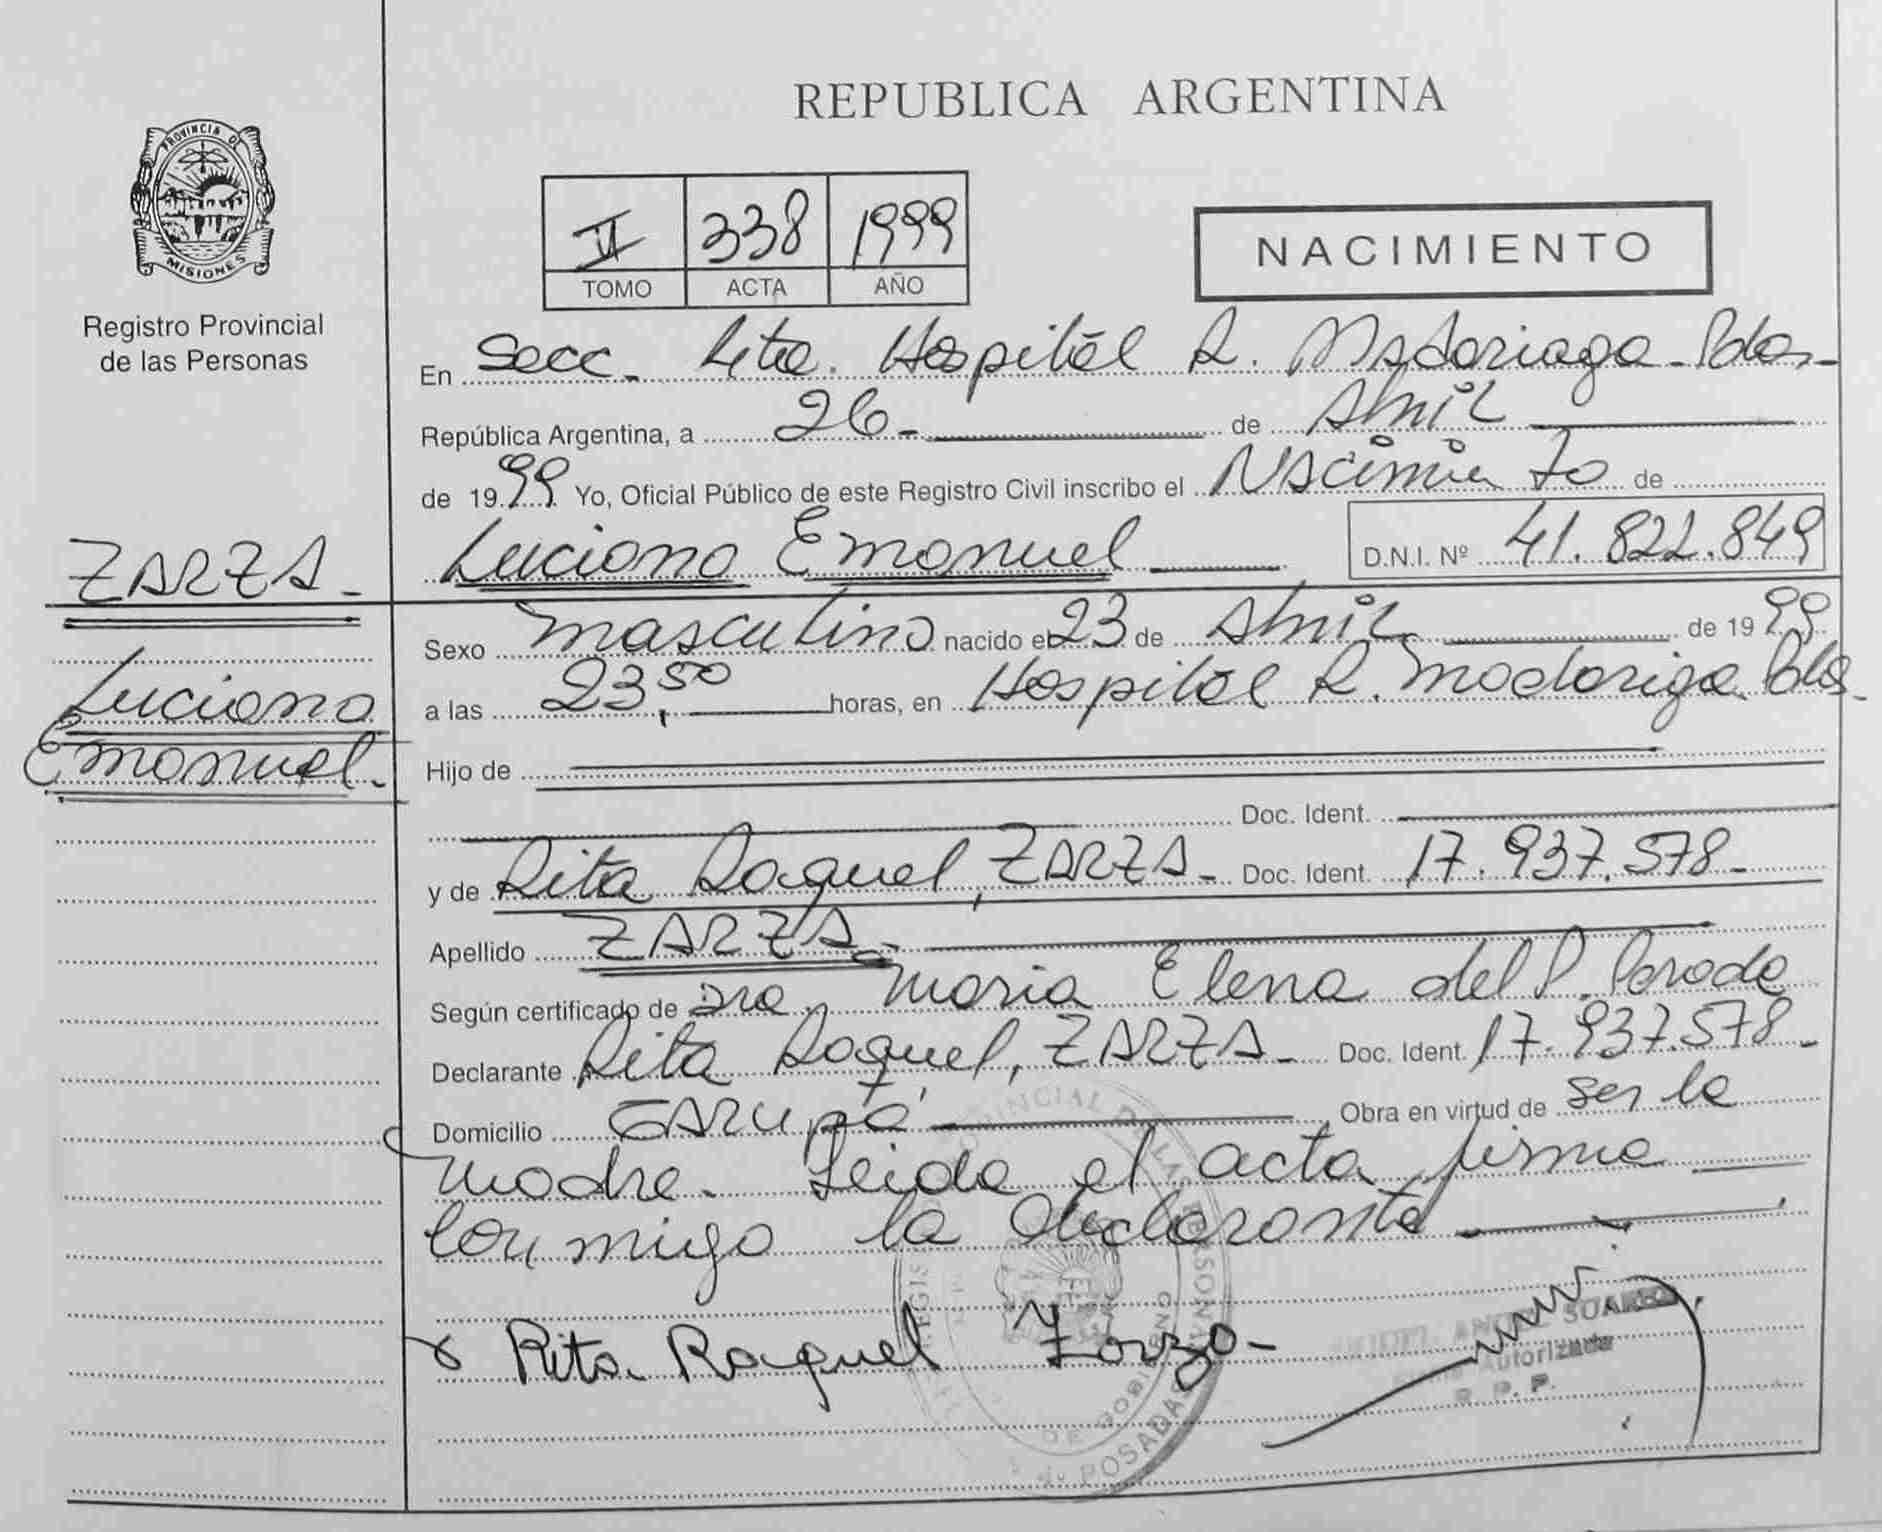 PROVINCIA DE
MISIONES
Registro Provincial
de las Personas
ZARZA -
Luciano
Emanuel -
REPUBLICA ARGENTINA
II 338 1999
TOMO ACTA AÑO
NACIMIENTO
En Secc. 4ta. Hospital R. Madariaga - Pdas -
República Argentina, a 26 - de Abril
de 1999 Yo, Oficial Público de este Registro Civil inscribo el Nacimiento de
Luciano Emanuel D.N.I. Nº 41.822.849
Sexo masculino nacido el 23 de Abril de 1999
a las 23,50 horas, en Hospital R. Madariga Pdas -
Hijo de
Doc. Ident.
y de Rita Raquel, ZARZA - Doc. Ident. 17.937.578 -
Apellido ZARZA -
Según certificado de Dra. Maria Elena del P. Parada
Declarante Rita Raquel, ZARZA - Doc. Ident. 17.937.578 -
Domicilio GARUPÁ Obra en virtud de ser la
madre. Leida el acta firma
conmigo la declarante -
x Rita Raquel Zarza -
SUAREZ
Autorizada
R. P. P.
REGISTRO PROVINCIAL DE LAS PERSONAS
DE GOBIERNO
POSADAS